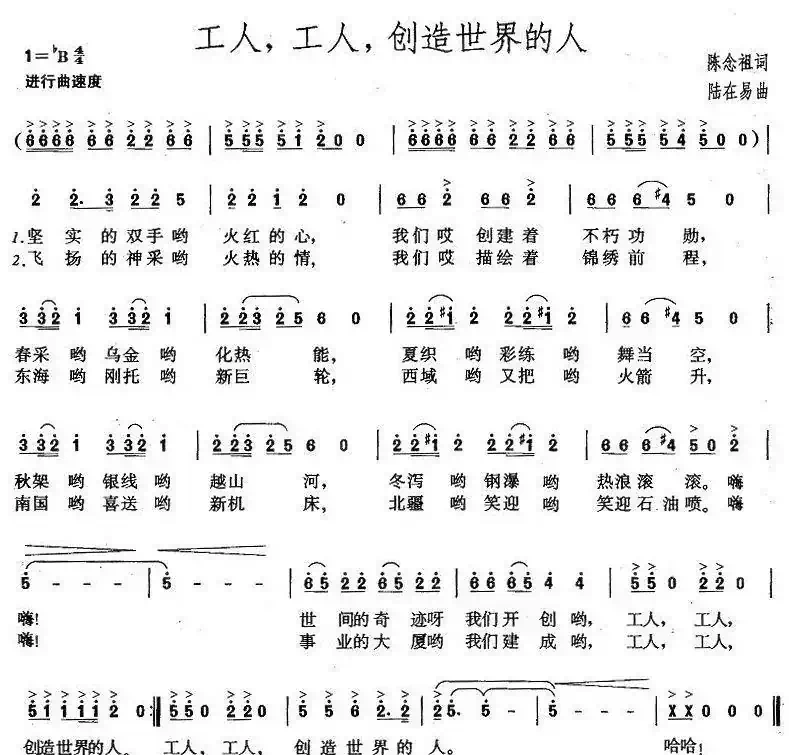 工人，工人，创造世界的人
1=♭B 4/4
进行曲速度
陈念祖词
陆在易曲
(6666 66 22 66 | 555 51 200 | 6666 66 22 66 | 555 54 500)|
2 2. 3 2 2 5 | 2 2 1 2 0 | 6 6 2 6 6 2 | 6 6 6 6 #4 5 0 |
1.坚 实 的 双手 哟 火红 的 心， 我们 哎 创建 着 不朽 功 勋，
2.飞 扬 的 神采 哟 火热 的 情， 我们 哎 描绘 着 锦绣 前 程，
3 32 1 3 32 1 | 2 23 25 6 0 | 2 2#1 2 2 2#1 2 | 6 6 6 #4 5 0 |
春采 哟 乌金 哟 化热 能， 夏织 哟 彩练 哟 舞当 空，
东海 哟 刚托 哟 新巨 轮， 西域 哟 又把 哟 火箭 升，
3 32 1 3 32 1 | 2 23 25 6 0 | 2 2#1 2 2 2#1 2 | 6 6 6 #4 5 0 2 |
秋架 哟 银线 哟 越山 河， 冬泻 哟 钢瀑 哟 热浪 滚 滚。嗨
南国 哟 喜送 哟 新机 床， 北疆 哟 笑迎 哟 笑迎 石 油 喷。嗨
5 - - - | 5 - - - | 65 22 65 22 | 66 65 4 4 | 55 0 22 0 |
嗨! 世 间的 奇 迹呀 我们 开 创 哟， 工人， 工人，
嗨! 事 业的 大 厦哟 我们 建 成 哟， 工人， 工人，
51 11 1 2 0 :‖ 550 220 | 5 5 6 5 2. 2 | 25. 5 - | 5 - - - | XX 0 0 0 ‖
创造世界的人。 工人， 工人， 创 造 世 界 的 人。 哈哈!